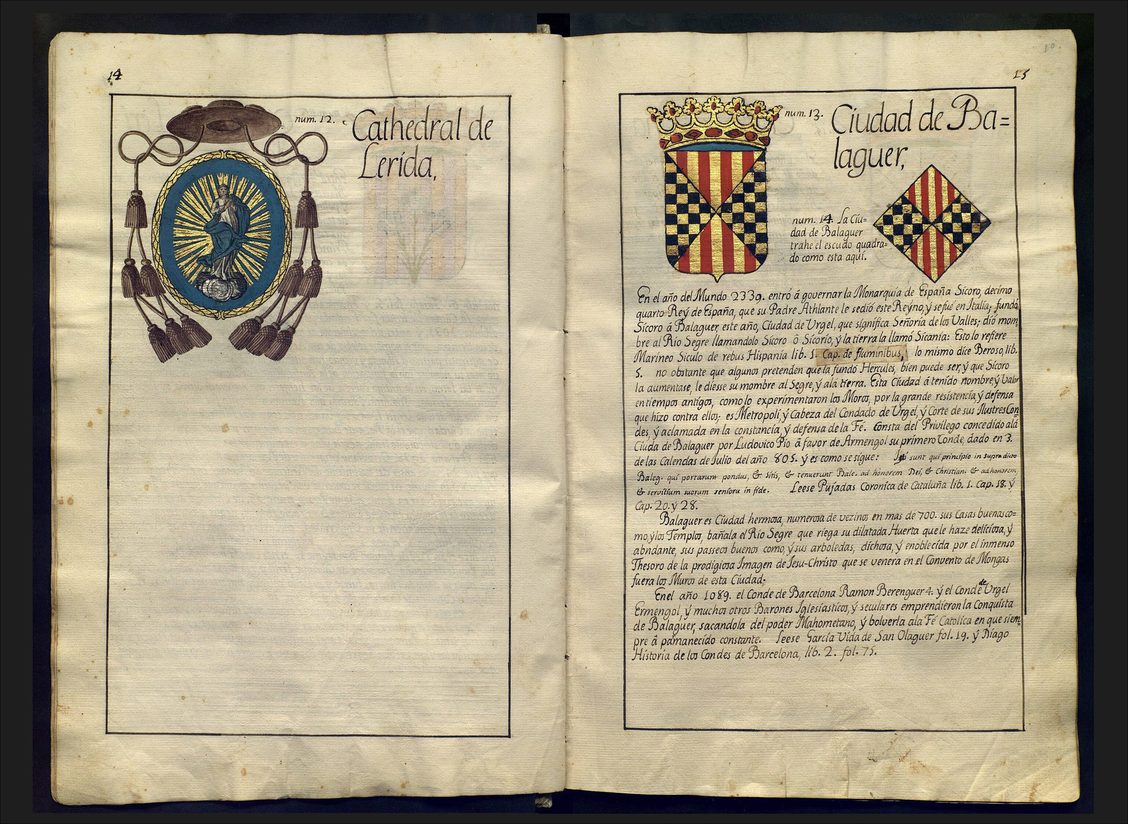 14
num. 12.
Cathedral de
Lerida,
15
num. 13.
Ciudad de Ba=
laguer,
num. 14. La Ciu-
dad de Balaguer
trahe el escudo quadra-
do como esta aqui.
En el año del Mundo 2339. entró á governar la Monarquia de España Sicoro, decimo
quarto Rey de España, que su Padre Athlante le sedió este Reyno, y se fué en Italia; fundá
Sicoro á Balaguer este año, Ciudad de Urgel, que significa Señoria de los Valles; dió mom
bre al Rio Segre llamandolo Sicoro ó Sicorio, y la tierra la llamó Sicania: Esto lo refere
Marineo Siculo de rebus Hispania lib. 1. Cap. de fluminibus, lo mismo dice Beroso, lib.
5. no obstante que algunos pretenden que la fundó Hercules, bien puede ser, y que Sicoro
la aumentase, le diese su mombre al Segre, y alá tierra. Esta Ciudad á tenido nombre, y Valor
en tiempos antigos, como lo experimentaron los Moros, por la grande resistencia, y defensa
que hizo contra ellos; es Metropoli, y Cabeza del Condado de Urgel, y Corte de sus Ilustres Con
des, y aclamada en la constancia, y defensa de la Fé. Consta del Privilego concedido alá
Ciuda de Balaguer por Ludovico Pio á favor de Armengol su primero Conde, dado en 3.
de las Calendas de Julio del año 805. y es como se sigue: sunt qui principio in supradicto
Balag. qui portarum pondus, & sitis, & tenuerunt Bale. ad honorem Dei, & Christian. & ad honorem,
& servitium suorum seniorū in fide. Leese Pujadas Coronica de Cataluña lib. 1. Cap. 18. y
Cap. 20. y 28.
Balaguer es Ciudad hermosa, numerosa de vezinos en mas de 700. sus Casas buenas co-
mo, y los Templos, bañala el Rio Segre que riega su dilatada Huerta que le haze deliciosa, y
abndante, sus passeos buenos como, y sus arboledas, dichosa, y enoblecida por el inmenso
Thesoro de la prodigiosa Imagen de Jesu-Christo que se venera en el Convento de Mongas
fuera los Muros de esta Ciudad.
En el año 1089. el Conde de Barcelona Ramon Berenguer 4. y el Conde de Urgel
Ermengol, y muchos otros Barones Iglesiasticos, y seculares emprendieron la Conquista
de Balaguer, sacandola del poder Mahometano, y bolverla ala Fé Catolica en que siem
pre á pamanecido constante. Leese Garcia Vida de San Olaguer fol. 19. y Diago
Historia de los Condes de Barcelona, lib. 2. fol. 75.